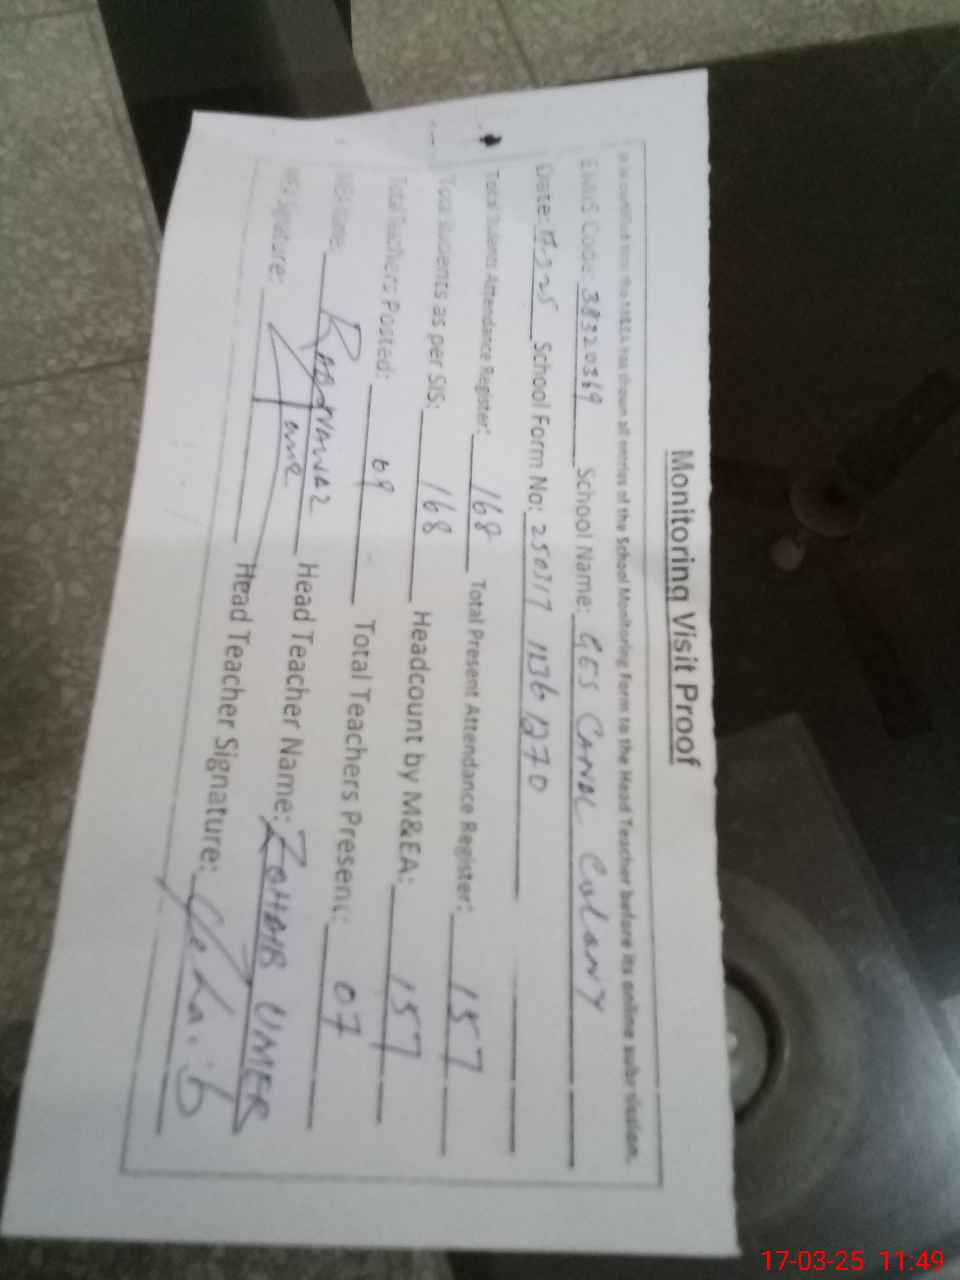 Monitoring Visit Proof
It is certified that the M&EA has shown all entries of the School Monitoring Form to the Head Teacher before its online submission.
EMIS Code: 38320369 School Name: GES CANAL COLONY
Date: 17-3-25 School Form No: 250317 1136 1270
Total Student Attendance Register: 168 Total Present Attendance Register: 157
Total Students as per SIS: 168 Headcount by M&EA: 157
Total Teachers Posted: 09 Total Teachers Present: 07
MEA Name: RabNawaz Head Teacher Name: ZOHAIB UMER
MEA Signature: Head Teacher Signature: Zohaib
17-03-25 11:49